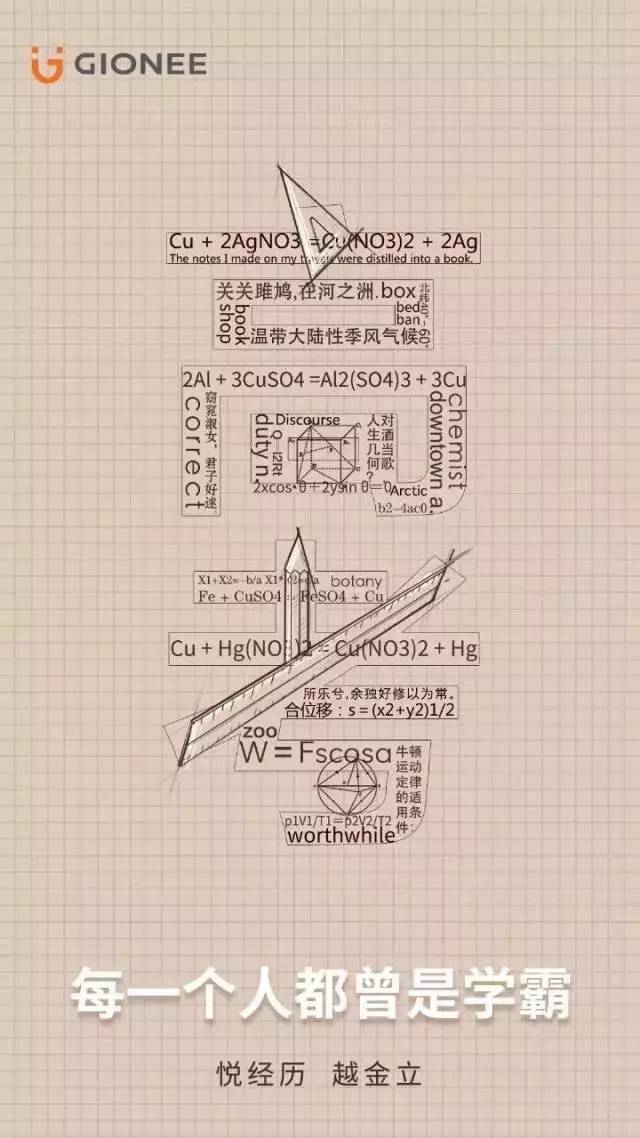 GIONEE
Cu + 2AgNO3 =Cu(NO3)2 + 2Ag
The notes I made on my travels were distilled into a book.
关关雎鸠,在河之洲.
box
北纬40°-60°
book
shop
bed
ban
温带大陆性季风气候
2Al + 3CuSO4 =Al2(SO4)3 + 3Cu
correct
窈窕淑女，君子好逑。
duty n.
Q=I2Rt
Discourse
对酒当歌
人生几何?
chemist
downtown a.
2xcos θ+2ysin θ=0
Arctic
b2-4ac0.
X1+X2=-b/a X1*X2=c/a
botany
Fe + CuSO4 = FeSO4 + Cu
Cu + Hg(NO3)2 = Cu(NO3)2 + Hg
所乐兮,余独好修以为常。
合位移：s = (x2+y2)1/2
zoo
W = Fscosa
牛顿
运动
定律
的适
用条
件：
p1V1/T1=p2V2/T2
worthwhile
每一个人都曾是学霸
悦经历 越金立